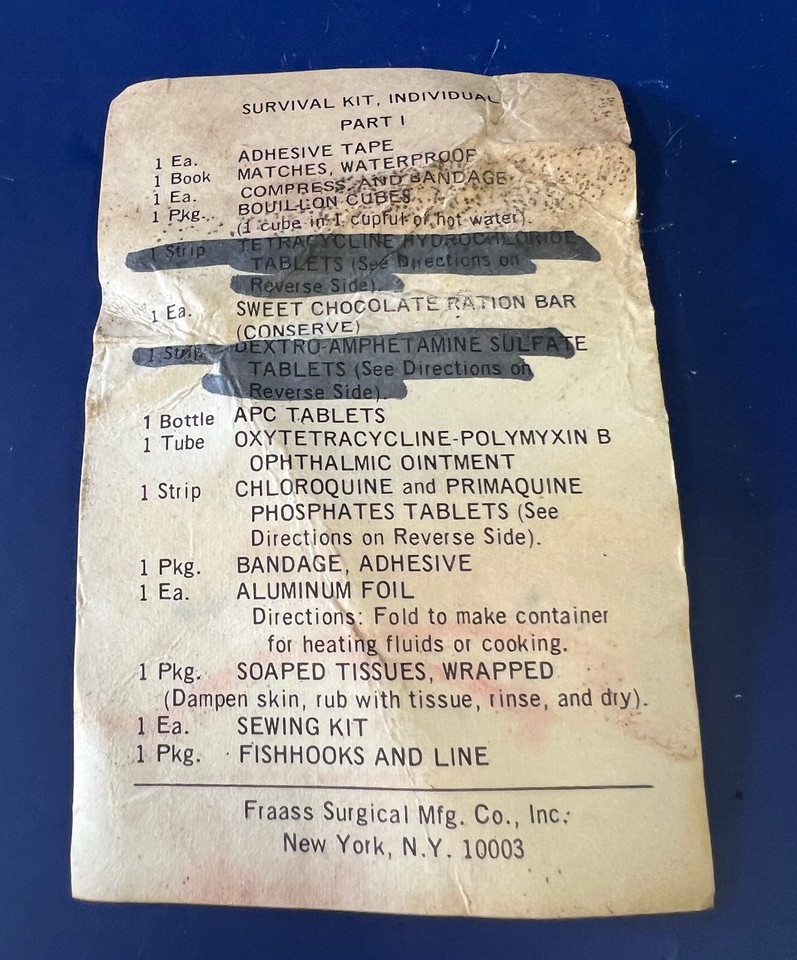 SURVIVAL KIT, INDIVIDUAL
PART I
1 Ea. ADHESIVE TAPE
1 Book MATCHES, WATERPROOF
1 Ea. COMPRESS AND BANDAGE
1 Pkg. BOUILLON CUBES
(1 cube in 1 cupful of hot water).
1 Strip TETRACYCLINE HYDROCHLORIDE
TABLETS (See Directions on
Reverse Side).
1 Ea. SWEET CHOCOLATE RATION BAR
(CONSERVE)
1 Strip DEXTRO-AMPHETAMINE SULFATE
TABLETS (See Directions on
Reverse Side).
1 Bottle APC TABLETS
1 Tube OXYTETRACYCLINE-POLYMYXIN B
OPHTHALMIC OINTMENT
1 Strip CHLOROQUINE and PRIMAQUINE
PHOSPHATES TABLETS (See
Directions on Reverse Side).
1 Pkg. BANDAGE, ADHESIVE
1 Ea. ALUMINUM FOIL
Directions: Fold to make container
for heating fluids or cooking.
1 Pkg. SOAPED TISSUES, WRAPPED
(Dampen skin, rub with tissue, rinse, and dry).
1 Ea. SEWING KIT
1 Pkg. FISHHOOKS AND LINE
Fraass Surgical Mfg. Co., Inc.
New York, N.Y. 10003